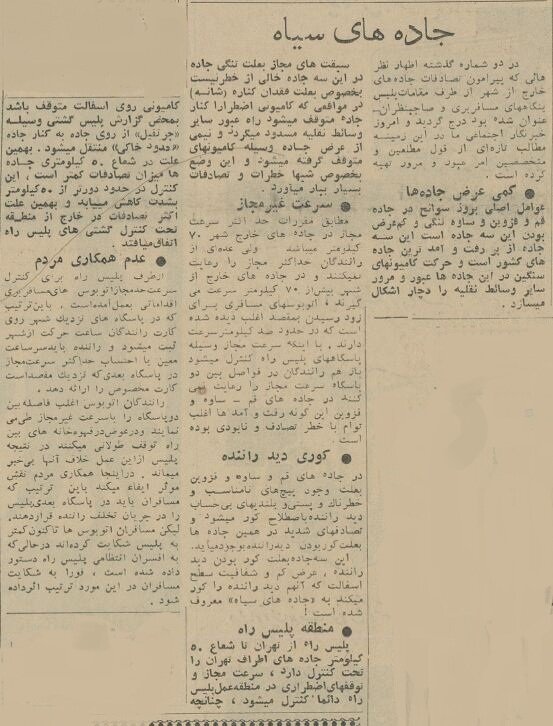 جاده های سیاه
در دو شماره گذشته اظهار نظر
هائی که پیرامون تصادفات جاده‌های
خارج از شهر از طرف مقامات‌پلیس
بنگاههای مسافربری و صاحبنظران‌ـ
عنوان شده بود درج گردید و امروز
خبرنگار اجتماعی ما در این زمینه
مطالب تازه‌ای از قول مطلعین و
متخصصین امر عبور و مرور تهیه
کرده است .
● کمی عرض جاده‌ها
عوامل اصلی بروز سوانح در جاده
قم و قزوین و ساوه تنگی و کم‌عرض
بودن این سه جاده است این سه
جاده از پر رفت و آمد ترین جاده
های کشور است و حرکت کامیونهای
سنگین در این جاده ها عبور و مرور
سایر وسائط نقلیه را دچار اشکال
میسازد .
سبقت های مجاز بعلت تنگی جاده
در این سه جاده خالی از خطرنیست
بخصوص بعلت فقدان کناره (شانه)
در مواقعی که کامیونی اضطرارا کنار
جاده متوقف میشود راه عبور سایر
وسائط نقلیه مسدود میگردد و نیمی
از عرض جاده وسیله کامیونهای
متوقف گرفته میشود و این وضع
بخصوص شبها خطرات و تصادفات
بسیار ببار میاورد .
● سرعت غیرمجاز
مطابق مقررات حد اکثر سرعت
مجاز در جاده های خارج شهر ۷۰
کیلومتر میباشد ولی عده‌ای از
رانندگان حداکثر مجاز را رعایت
نمیکنند و در جاده های خارج از
شهر بیش‌از ۷۰ کیلومتر سرعت می
گیرند . اتوبوسهای مسافری برای
زود رسیدن بمقصد اغلب دیده شده
است که در حدود صد کیلومترسرعت
دارند . با اینکه سرعت مجاز وسیله
پاسگاههای پلیس راه کنترل میشود
باز هم رانندگان در فواصل بین دو
پاسگاه سرعت مجاز را رعایت نمی
کنند در جاده های قم ـ ساوه و
قزوین این گونه رفت و آمد ها اغلب
توام با خطر تصادف و نابودی بوده
است .
● کوری دید راننده
در جاده های قم و ساوه و قزوین
بعلت وجود پیچ‌های نامناسب و
خطرناک و پستی‌و بلندیهای بی‌حساب
دید راننده باصطلاح کور میشود و
تصادفهای شدید در همین جاده ها
بعلت‌کور‌بودن دیدراننده بوجودمیاید.
این سه‌جاده بعلت کور بودن دید
راننده ، عرض کم و شفافیت سطح
اسفالت که آنهم دید راننده را کور
میکند به «جاده های سیاه» معروف
شده است !
● منطقه پلیس راه
پلیس راه از تهران تا شعاع ۵۰
کیلومتر جاده های اطراف تهران را
تحت کنترل دارد ، سرعت مجاز و
توقفهای‌اضطراری در منطقه‌عمل‌پلیس
راه دائما کنترل میشود ، چنانچه
کامیونی روی اسفالت متوقف باشد
بمحض گزارش پلیس گشتی وسیلــه
«جرثقیل» از روی جاده به کنار جاده
«حدود خاکی» منتقل میشود . بهمین
علت در شعاع ۵۰ کیلومتری جــاده
ها میزان تصادفات کمتر است . این
کنترل در حدود دورتر از ۵۰کیلومتر
بشدت کاهش مییابد و بهمین علت
اکثر تصادفات در خارج از منطـقه
تحت کنترل گشتی های پلیس راه
اتفاق‌میافتد .
● عدم همکاری مردم
ازطرف پلیس راه برای کنترل
سرعت‌حدمجازاتوبوس های‌مسافربری
اقداماتی بعمل‌آمده‌است . باین‌ترتیب
که در پاسگاه های نزدیک شهر روی
کارت رانندگان ساعت حرکت ازشهر
ثبت میشود و راننده بایدسرساعت
معین با احتساب حداکثر سرعت‌مجاز
در پاسگاه بعدی‌که نزدیک مقصداست
کارت مخصوص را ارائه دهد .
رانندگان اتوبوس اغلب فاصله‌بین
دوپاسگاه را باسرعت غیر مجاز طی‌می
نمایند ودرعوض‌درقهوه‌خانه های بین
راه توقف طولانی میکنند در نتیجه
پلیس ازاین عمل خلاف آنها بی‌خبر
میماند . دراینجا همکاری مردم نقش
موثر ایفاء میکند باین ترتیب که
مسافران باید در پاسگاه بعدی‌پلیس
را در جریان تخلف راننده قراردهند.
لیکن مسافران اتوبوس ها تاکنون‌کمتر
به پلیس شکایت کرده‌اند درحالی‌که
به افسران انتظامی پلیس راه دستور
داده شده است ، فورا به شکایت
مسافران در این مورد ترتیب اثرداده
شود .